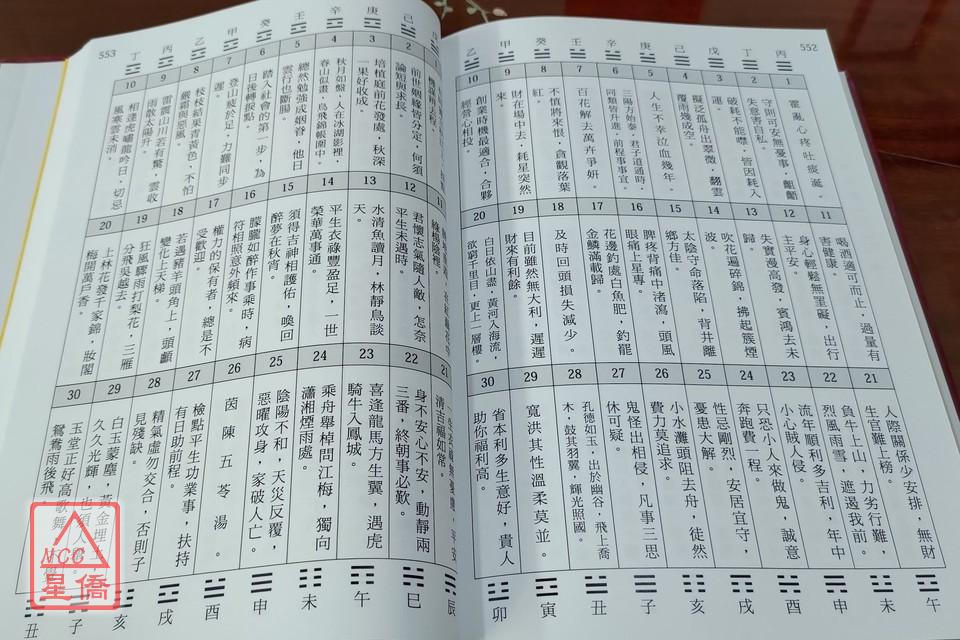 552
丙 丁 戊 己 庚 辛 壬 癸 甲 乙
1
霍亂心疼吐痰涎。
2
守則可安無憂事，齟齬
失意害自私。
3
破耗不能嘩，皆因耗入
運。
4
擬泛孤舟出翠微，翻雲
覆雨幾成空。
5
人生不幸泣血幾年。
6
三陽方始泰，君子道通時，
同類皆升進，前程事事宜。
7
百花解去萬卉爭妍。
8
不慎將來恨，貪觀落葉
紅。
9
財在場中去，耗星突然
來。
10
創業時機最適合，合夥
經營心相投。
11
喝酒適可而止，過量有
害健康。
12
身心輕鬆無罣礙，出行
主平安。
13
失實漫高發，賓鴻去未
歸。
14
吹花遍碎錦，拂起簇煙
波。
15
太陰守命落陷，背井離
鄉方佳。
16
脾疼背痛中渚瀉，頭風
眼痛上星專。
17
花邊釣處白魚肥，釣罷
金鱗滿載歸。
18
及時回頭損失減少。
19
目前雖然無大利，遲遲
財來有利餘。
20
白日依山盡，黃河入海流，
欲窮千里目，更上一層樓。
21
人際關係少安排，無財
生官難上榜。
22
負牛上山，力劣行難，
烈風雨雪，遮遏我前。
23
流年順利多吉利，年中
小心賊人侵。
24
只恐小人來做鬼，誠意
奔跑費一程。
25
性忌剛烈，安居宜守，
憂患大解。
26
小水灘頭阻去舟，徒然
費力莫追求。
27
鬼怪出相侵，凡事三思
休可疑。
28
孔德如玉，出於幽谷，飛上喬
木，鼓其羽翼，輝光照國。
29
寬洪其性溫柔莫並。
30
省本利多生意好，貴人
助你福利高。
午 未 申 酉 戌 亥 子 丑 寅 卯
553
戊 己 庚 辛 壬 癸 甲 乙 丙 丁
2
前世姻緣皆分定，何須
論短與求長。
3
培植庭前花發處，秋深
一果好收成。
4
秋月如盤，人在冰湖影裡，
春山似畫，鳥飛錦帳圍中。
5
總然勉強成姻眷，他日
雲行也斷腸。
6
踏入社會的第一步，為
日後轉捩點。
7
登山疲於足，力難同步
遲。
8
枝枝結果青黃色，不怕
嚴霜與惡風。
9
雷震山川若有驚，雲收
雨散太陽升。
10
相逢虎嘯龍吟日，切忌
風寒雲未消。
11
綠楊陰裡
12
君懷志氣隨人敵，怎奈
平生未遇時。
13
水清魚讀月，林靜鳥談
天。
14
平生衣祿豐盈足，一世
榮華萬事通。
15
須得吉神相護佑，喚回
醉夢在秋宵。
16
朦朧如醉作事乘時，病
符相照意外頻來。
17
權力的保有者，總是不
受歡迎。
18
若遇豬羊頭角上，頭顱
變化上天梯。
19
狂風驟雨打梨花，三雁
分飛吳越去。
20
上林花發千家錦，妝閣
梅開萬戶香。
21
清吉福如常。
22
身不安心不安，動靜兩
三番，終朝事必艱。
23
喜逢龍馬方生翼，遇虎
騎牛入鳳城。
24
乘舟舉棹問江梅，獨向
瀟湘煙雨處。
25
陰陽不和，天災反覆，
惡曜攻身，家破人亡。
26
茵陳五苓湯。
27
檢點平生功業事，扶持
有日助前程。
28
精氣虛勿交合，否則子
見殘缺。
29
白玉蒙塵，黃金埋土，
久久光輝，也須人
30
玉堂正好高歌舞，不覺
鴛鴦雨後飛。
辰 巳 午 未 申 酉 戌 亥 子 丑
NCC
星僑